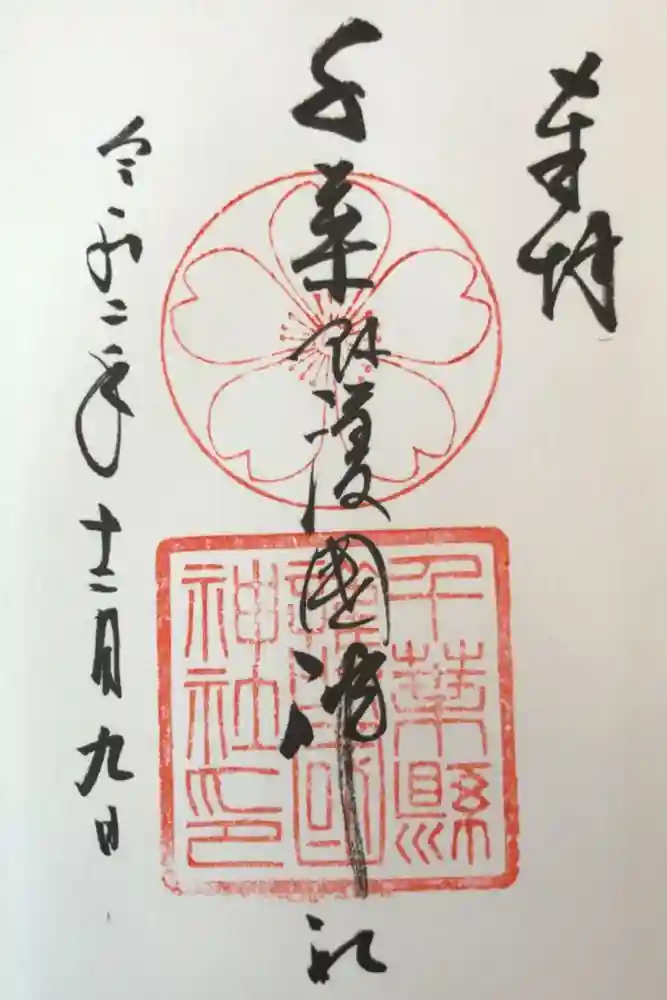 奉拝
千葉縣護國神社
令和二年十二月九日
千葉縣
護國
神社印